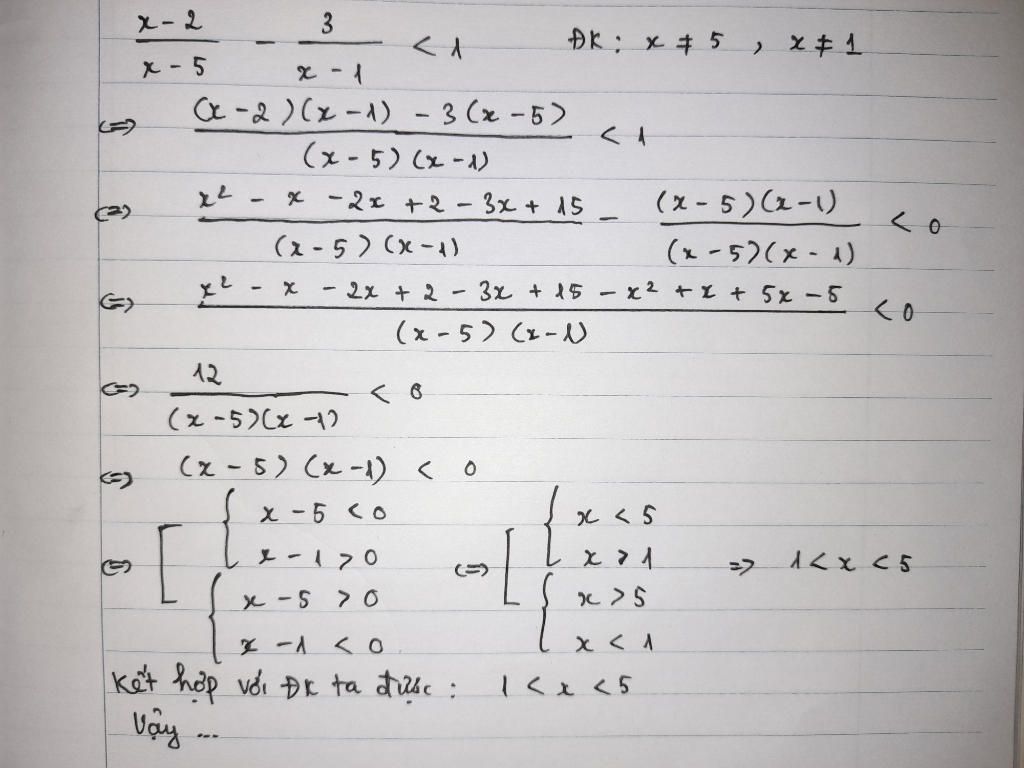 x - 2 / x - 5 - 3 / x - 1 < 1 ĐK : x ≠ 5 , x ≠ 1
<=> (x - 2)(x - 1) - 3(x - 5) / (x - 5)(x - 1) < 1
<=> x² - x - 2x + 2 - 3x + 15 / (x - 5)(x - 1) - (x - 5)(x - 1) / (x - 5)(x - 1) < 0
<=> x² - x - 2x + 2 - 3x + 15 - x² + x + 5x - 5 / (x - 5)(x - 1) < 0
<=> 12 / (x - 5)(x - 1) < 0
<=> (x - 5)(x - 1) < 0
<=> [ { x - 5 < 0 <=> [ { x < 5
x - 1 > 0 x > 1 => 1 < x < 5
{ x - 5 > 0 { x > 5
x - 1 < 0 x < 1
Kết hợp với ĐK ta được : 1 < x < 5
Vậy ...